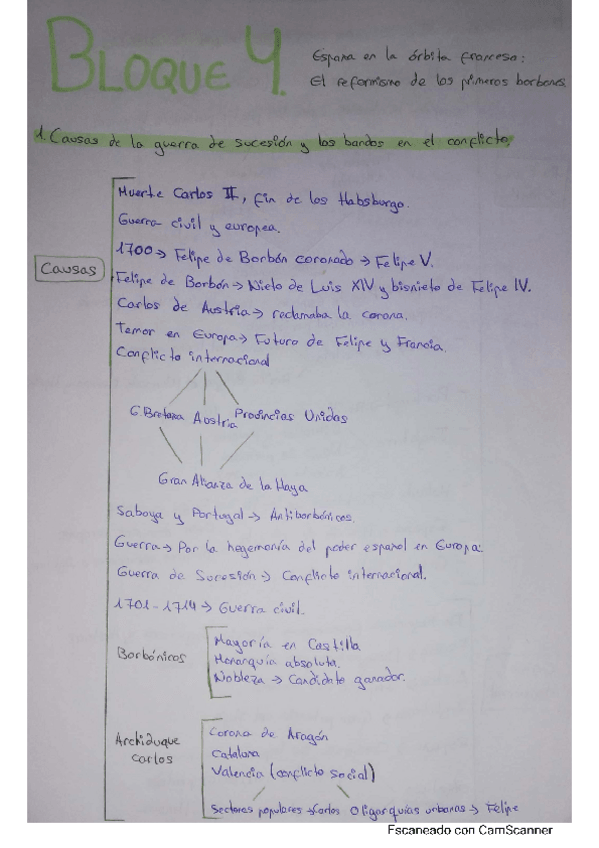 BLOQUE 4.
España en la órbita francesa:
El reformismo de los primeros borbones.
1. Causas de la guerra de sucesión y los bandos en el conflicto.
Causas
Muerte Carlos II, fin de los Habsburgo.
Guerra civil y europea.
1700 → Felipe de Borbón coronado → Felipe V.
Felipe de Borbón → Nieto de Luis XIV y bisnieto de Felipe IV.
Carlos de Austria → reclamaba la corona.
Temor en Europa → Futuro de Felipe y Francia.
Conflicto internacional
G.Bretaña Austria Provincias Unidas
Gran Alianza de la Haya
Saboya y Portugal → Antiborbónicos.
Guerra → Por la hegemonía del poder español en Europa.
Guerra de Sucesión → Conflicto internacional.
1701-1714 → Guerra civil.
Borbónicos
Mayoría en Castilla.
Monarquía absoluta.
Nobleza → Candidato ganador.
Archiduque Carlos
Corona de Aragón
Catalana
Valencia (conflicto social)
Sectores populares → Carlos Oligarquías urbanas → Felipe
Escaneado con CamScanner